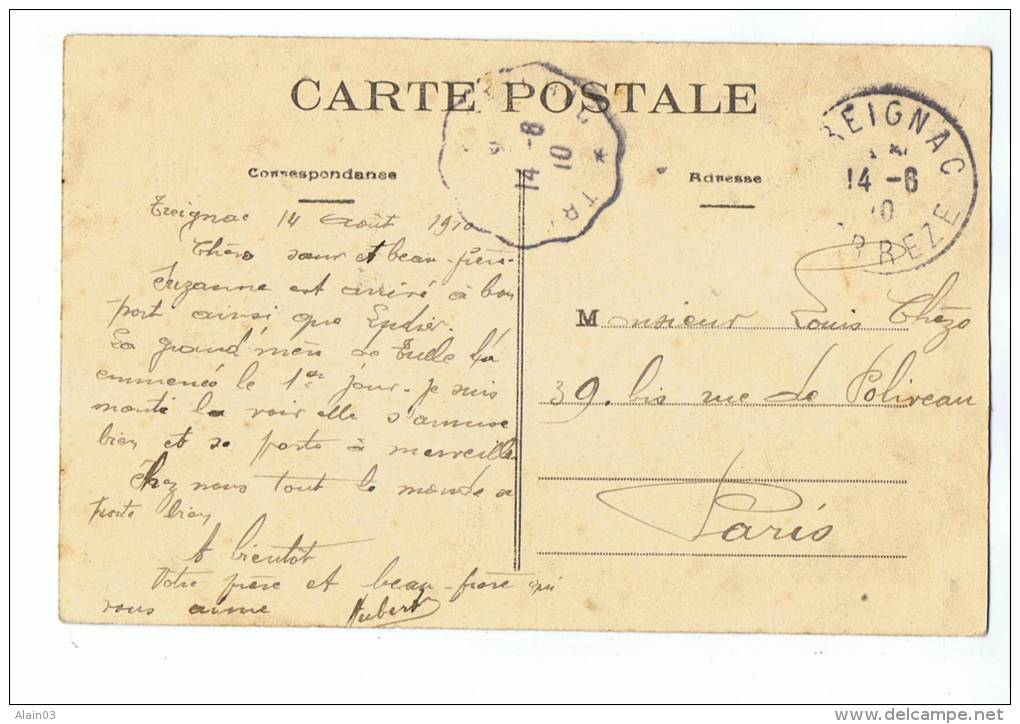 CARTE POSTALE
Correspondance
Adresse
14 -8
10
TR
REIGNAC
14 -8
10
RREZE
Treignac 14 Août 1910
Chère sœur et beau-frère
Suzanne est arrivé à bon
port ainsi que
La grand'mère de Tulle l'a
emmenée le 1er jour. je suis
monté la voir elle s'amuse
bien et se porte à merveille
Chez nous tout le monde se
porte bien
A bientôt
Votre frère et beau-frère qui
vous aime Hubert
Monsieur Louis Chèze
39. bis rue de Poliveau
Paris
Alain03
www.delcampe.net